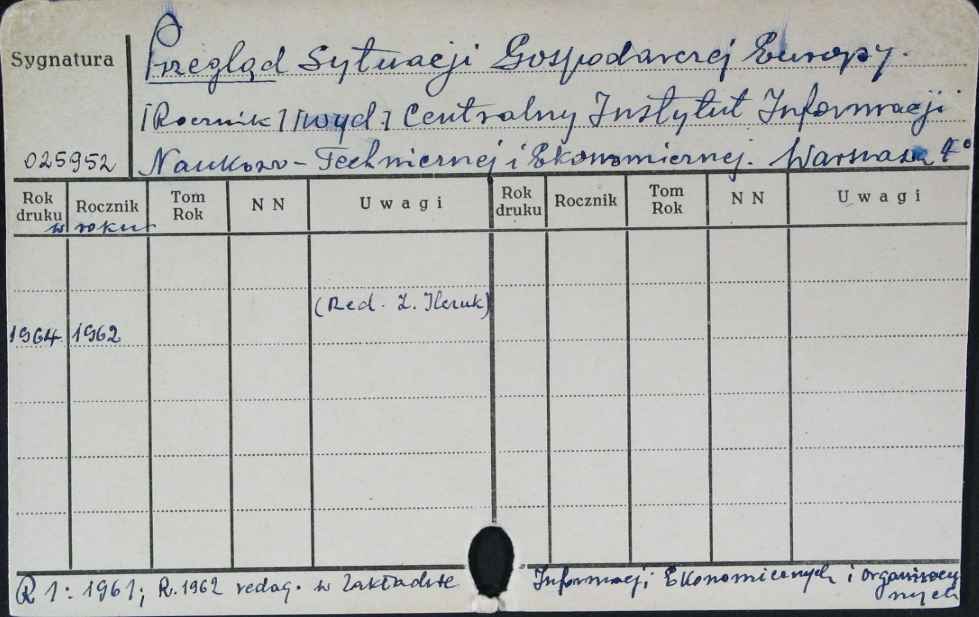 Sygnatura
Przegląd Sytuacji Gospodarczej Europy.
[Rocznik] [wyd.] Centralny Instytut Informacji
025952 Naukowo-Technicznej i Ekonomicznej. Warszawa 4°
Rok druku Rocznik Tom Rok NN Uwagi Rok druku Rocznik Tom Rok NN Uwagi
w roku
(Red. Z.
1964 1962
R 1: 1961; R. 1962 redag. w Zakładzie Informacji Ekonomicznych i organizacy
nych